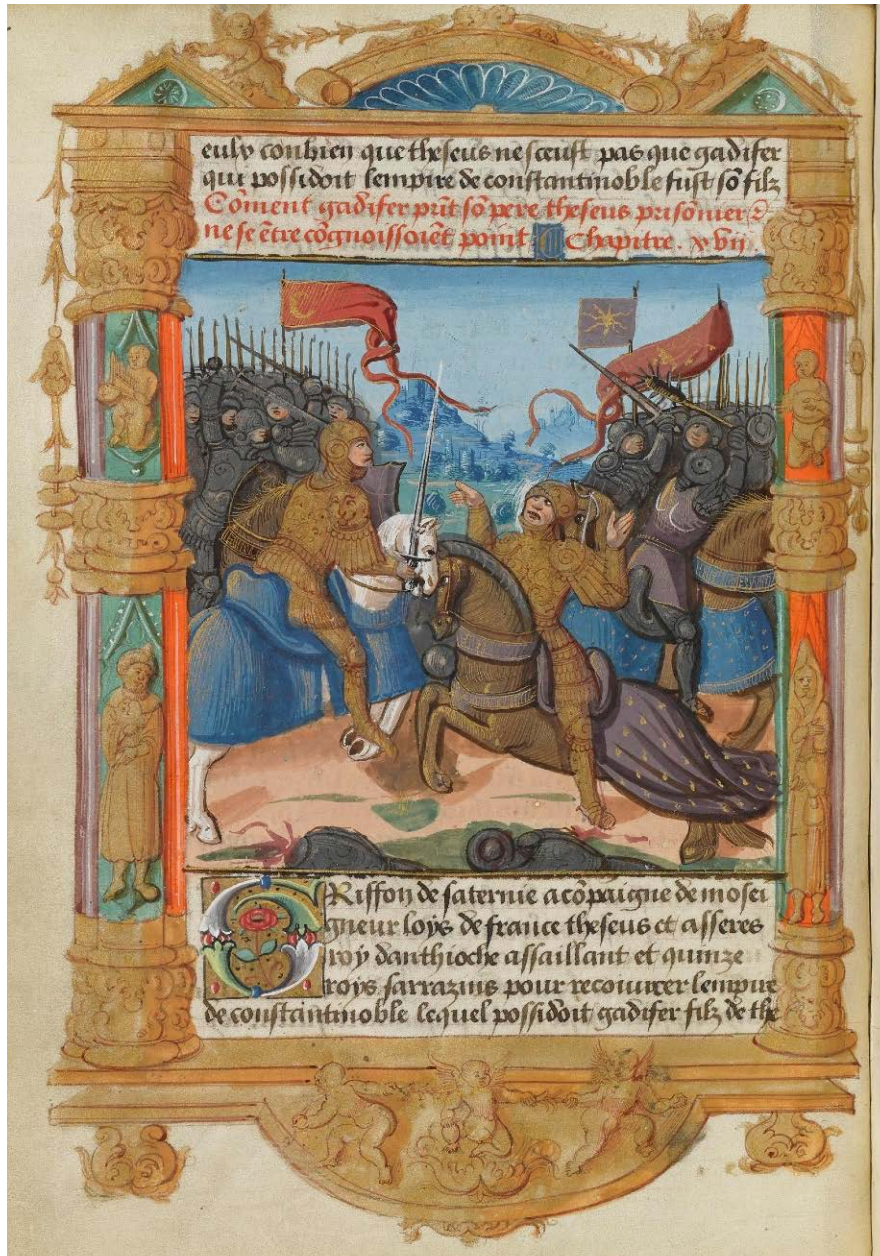 eulx conbien que theseus ne sceust pas que gadifer
qui possidoit lempire de constantinoble fust sõ filz
Cõment gadifer prĩt sõ pere theseus prisõnier &
ne se ẽtre cõgnoissoiẽt point Chapitre. xvii.
GRiffon de saternie acõpaigne de mosei
gneur loys de france theseus et asseres
roy danthioche assaillant et quinze
roys sarrazins pour recouurer lempire
de constantinoble lequel possidoit gadifer filz de the